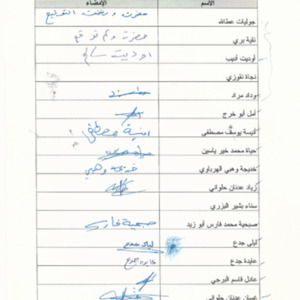 الاسم الإمضاء
جوليات عطالله حضرت ورفضت التوقيع
نقية بري حضرت ولم توقع
اوديت اديب اوديت
نجاة نقوزي
وداد مراد
امل أبو خرج
أنيسة يوسف مصطفى انيسة مصطفى
حياة محمد خير ياسين
خديجة وهبي الهرداوي خديجة وهبي
زياد عدنان حلواني
سناء بشير البزري
صبحية محمد فارس أبو زيد صبحية فارس
ليلى جدع ليلى جدع
عايدة جدع عايدة جدع
عادل قاسم البرجي
غسان عدنان حلواني